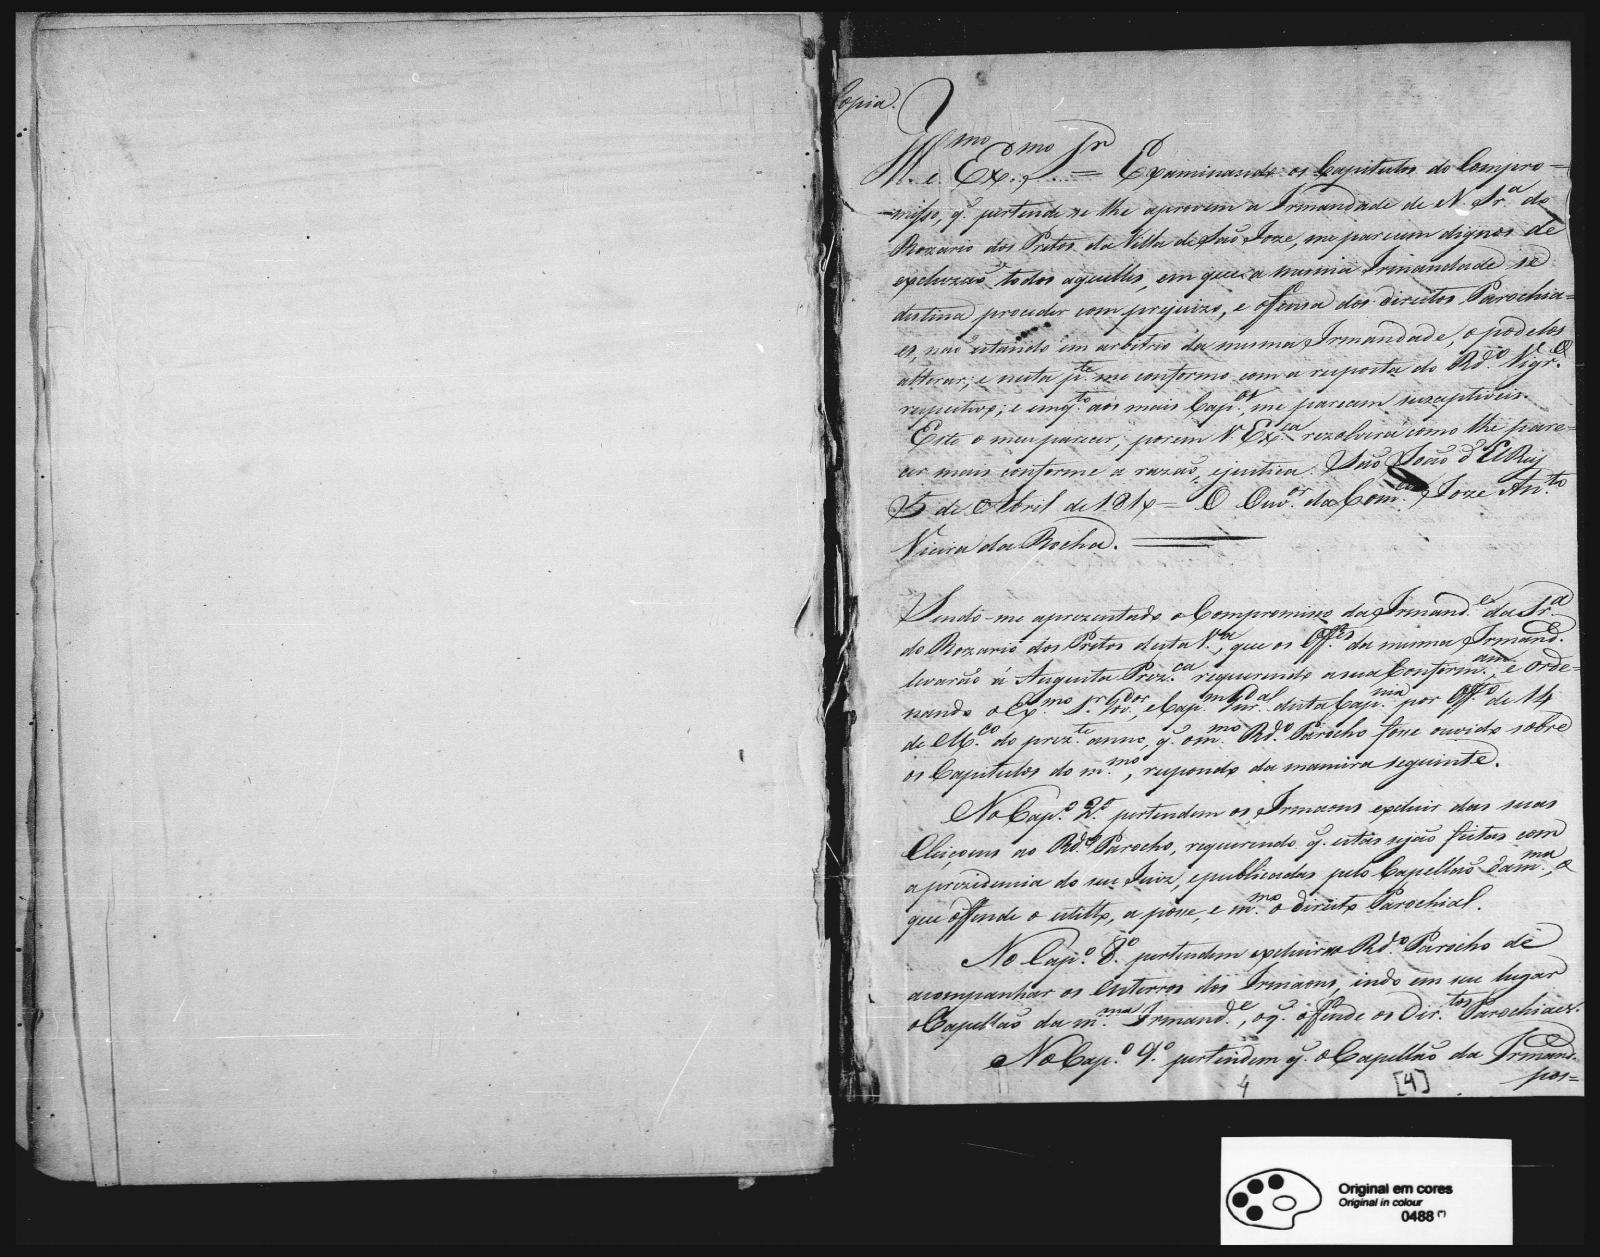 Copia.
Ill.mo e Ex.mo Sr. = Examinando os Capitulos do Compro=
misso, q. pertende se lhe aprovem a Irmandade de N. Sr.a do
Rozario dos Pretos da Villa de São Joze, me parecem dignos de
excluzaõ todos aquelles, em que a mesma Irmandade se
destina proceder com prejuizo, e offensa dos direitos Parochia=
es, naõ estando em arbitrio da mesma Irmandade, o podelos
alterar; e nesta p.te me conformo com a resposta do Rd.o Vigr.o
respectivo; e emq.to aos mais Cap.os, me parecem susceptiveis.
Este o meu parecer; porem V. Ex.ca rezolverá como lhe pare=
cer mais conforme a razaõ, e justica. Saõ Joaõ d'El Rey
15 de Abril de 181 = O Ouv.or da Com.ca Joze An.to
Vieira da Rocha.
Sendo-me aprezentado o Compromisso da Irmand.e da Sr.a
do Rozario dos Pretos desta V.a, que os Off.es da mesma Irmand.e
levaraõ á Augusta Prez.ca requerendo a sua Confirm.am, e Orde=
nando o Ex.mo Sr. Gov.dor, e Cap.m Gen.al desta Cap.nia por Off.o de 14
de M.co do prez.te anno, q. o m.mo Rd.o Parocho fosse ouvido sobre
os Capitulos do m.mo, respondo da maneira seguinte.
No Cap.o 2.o pertendem os Irmaons excluir das suas
Eleiçoens ao Rd.o Parocho, requerendo q. estas sejaõ feitas com
a prezidencia do seu Juiz, e publicadas pelo Capellaõ da m.ma, o
que offende o estillo, a posse, e m.mo o direito Parochial.
No Cap.o 8.o pertendem excluir ao Rd.o Parocho de
acompanhar os Enterros dos Irmaons, indo em seu lugar
o Capellaõ da m.ma Irmand.e, o q. offende os Dir.tos Parochiaes.
No Cap.o 9.o pertendem q. o Capellaõ da Irmand.e
pos=
4
[4]
Original em cores
Original in colour
0488 (*)